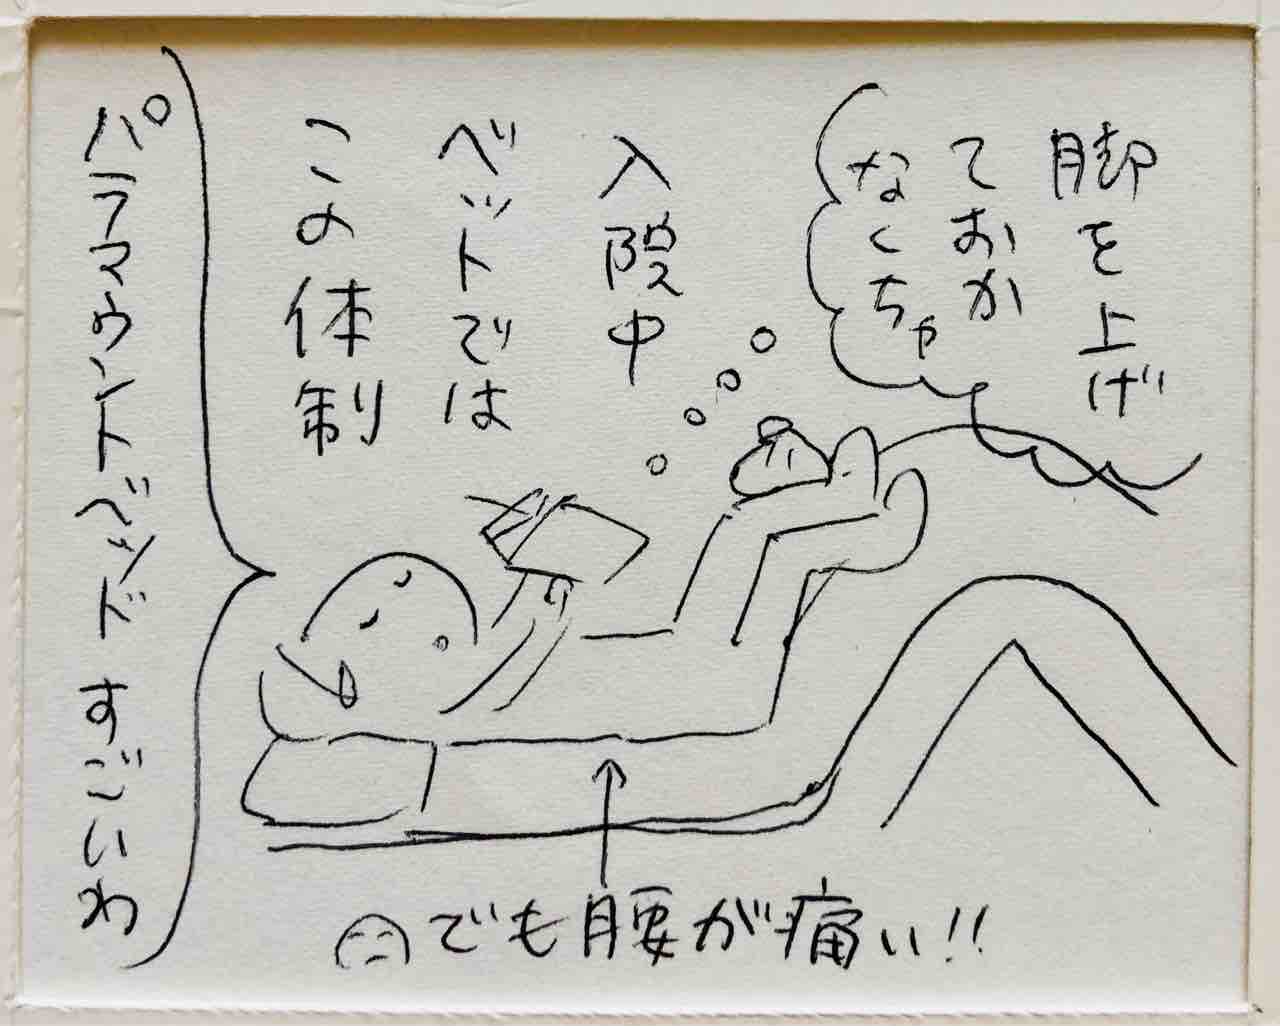 脚を上げ
ておか
なくちゃ
入院中
ベットでは
この体制
パラマウントベッドすごいわ
でも腰が痛い!!